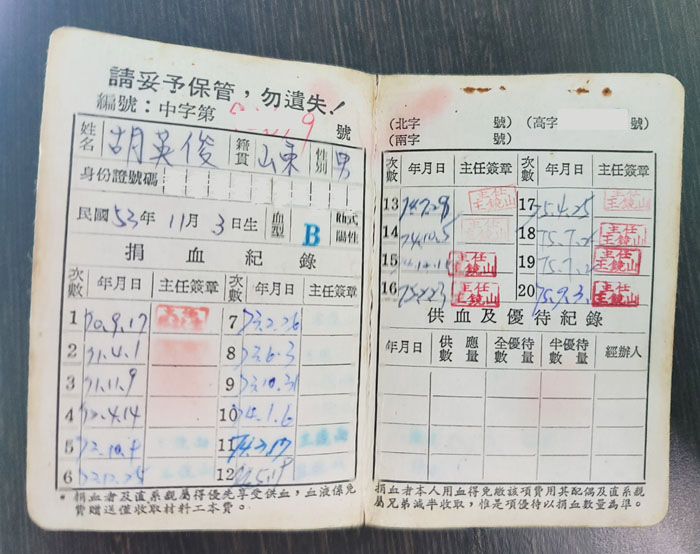 請妥予保管，勿遺失！
編號：中字第 9 號
姓名 胡英俊 籍貫 山東 性別 男
身份證號碼
民國 53 年 11 月 3 日生 血型 B 陽性
捐血紀錄
次數 年月日 主任簽章 次數 年月日 主任簽章
1 70.9.17 7 73.2.26
2 71.4.1 8 73.6.3
3 71.11.9 9 73.10.31
4 72.4.14 10 74.1.6
5 72.10.9 11 74.3.17
6 72.12.25 12
*捐血者及直系親屬得優先享受供血，血液係免
費贈送僅收取材料工本費。
(北字 號) (高字 號)
(南字 號)
次數 年月日 主任簽章 次數 年月日 主任簽章
13 74.7.28 主任王鏡山 17 75.4.25 主任王鏡山
14 74.10.5 18 75.7.2 主任王鏡山
15 74.12.15 主任王鏡山 19 75.7.2 主任王鏡山
16 75.2.23 主任王鏡山 20 75.9.3. 主任王鏡山
供血及優待紀錄
年月日 供應數量 全優待數量 半優待數量 經辦人
捐血者本人用血得免繳該項費用其配偶及直系親
屬兄弟減半收取，惟是項優待以捐血數量為準。